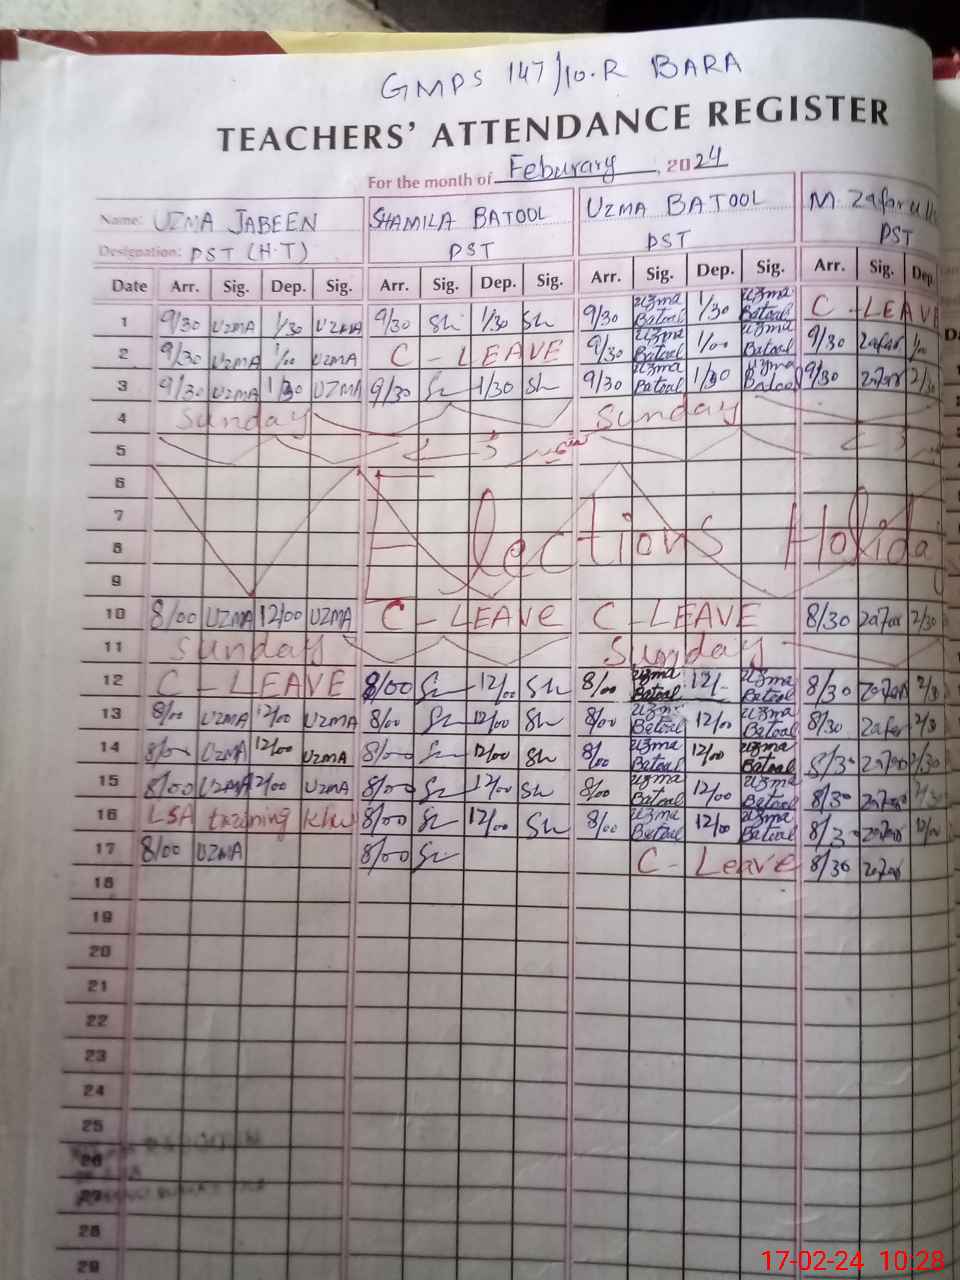 GMPS 147/10.R BARA
TEACHERS' ATTENDANCE REGISTER
For the month of Feburary, 2024
Name: UZMA JABEEN SHAMILA BATOOL UZMA BATOOL M Zafarull
Designation: PST (H.T) PST PST PST
Date Arr. Sig. Dep. Sig. Arr. Sig. Dep. Sig. Arr. Sig. Dep. Sig. Arr. Sig. Dep
1 9/30 UZMA 1/30 UZMA 9/30 Sh 1/30 Sh 9/30 Uzma Batool 1/30 Uzma Batool C - LEAVE
2 9/30 UZMA 1/00 UZMA C - LEAVE 9/30 Uzma Batool 1/00 Uzma Batool 9/30 Zafar 1/00
3 9/30 UZMA 1/30 UZMA 9/30 Sh 1/30 Sh 9/30 Uzma Batool 1/30 Uzma Batool 9/30 Zafar 2/30
4 Sunday Sunday
5
6
7 Elections Holida
8
9
10 8/00 UZMA 12/00 UZMA C - LEAVE C - LEAVE 8/30 Zafar 2/30
11 Sunday Sunday
12 C - LEAVE 8/00 Sh 12/00 Sh 8/00 Uzma Batool 12/- Uzma Batool 8/30 Zafar
13 8/00 UZMA 12/00 UZMA 8/00 Sh 12/00 Sh 8/00 Uzma Batool 12/00 Uzma Batool 8/30 Zafar
14 8/00 UZMA 12/00 UZMA 8/00 Sh 12/00 Sh 8/00 Uzma Batool 12/00 Uzma Batool 8/30 Zafar 2/30
15 8/00 UZMA 12/00 UZMA 8/00 Sh 12/00 Sh 8/00 Uzma Batool 12/00 Uzma Batool 8/30 Zafar 2/30
16 LSA training 8/00 Sh 12/00 Sh 8/00 Uzma Batool 12/00 Uzma Batool 8/30 Zafar 12/00
17 8/00 UZMA 8/00 Sh C - Leave 8/30 Zafar
18
19
20
21
22
23
24
25
26
27
28
29
17-02-24 10:28